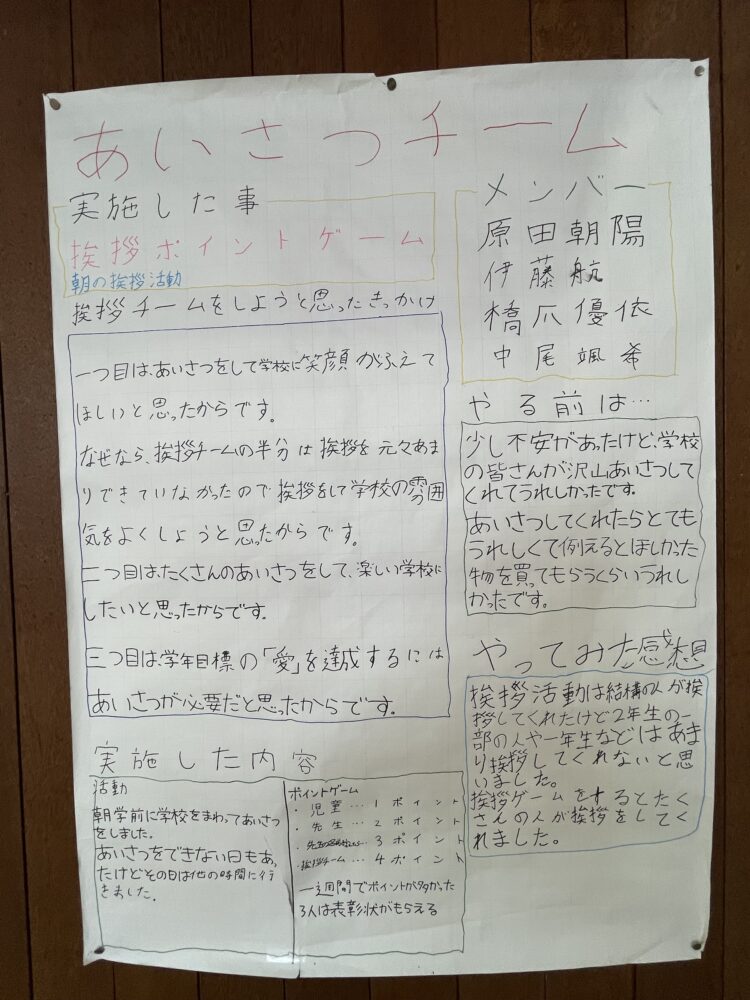 あいさつチーム
実施した事
挨拶ポイントゲーム
朝の挨拶活動
メンバー
原田朝陽
伊藤航
橋爪優依
中尾颯希
挨拶チームをしようと思ったきっかけ
一つ目は、あいさつをして学校に笑顔がふえて
ほしいと思ったからです。
なぜなら、挨拶チームの半分は挨拶を元々あま
りできていなかったので挨拶をして学校の雰囲
気をよくしようと思ったからです。
二つ目は、たくさんのあいさつをして、楽しい学校に
したいと思ったからです。
三つ目は、学年目標の「愛」を達成するには
あいさつが必要だと思ったからです。
やる前は…
少し不安があったけど、学校
の皆さんが沢山あいさつして
くれてうれしかったです。
あいさつしてくれたらとても
うれしくて例えるとほしかった
物を買ってもらうくらいうれし
かったです。
やってみた感想
挨拶活動は結構の人が挨
拶してくれたけど2年生の一
部の人や一年生などはあま
り挨拶してくれないと思
いました。
挨拶ゲームをするとたく
さんの人が挨拶をしてく
れました。
実施した内容
活動
朝学前に学校をまわってあいさつ
をしました。
あいさつをできない日もあっ
たけどその日は他の時間に行
きました。
ポイントゲーム
・児童…1ポイント
・先生…2ポイント
…3ポイント
・挨拶チーム…4ポイント
一週間でポイントが多かった
3人は表彰状がもらえる